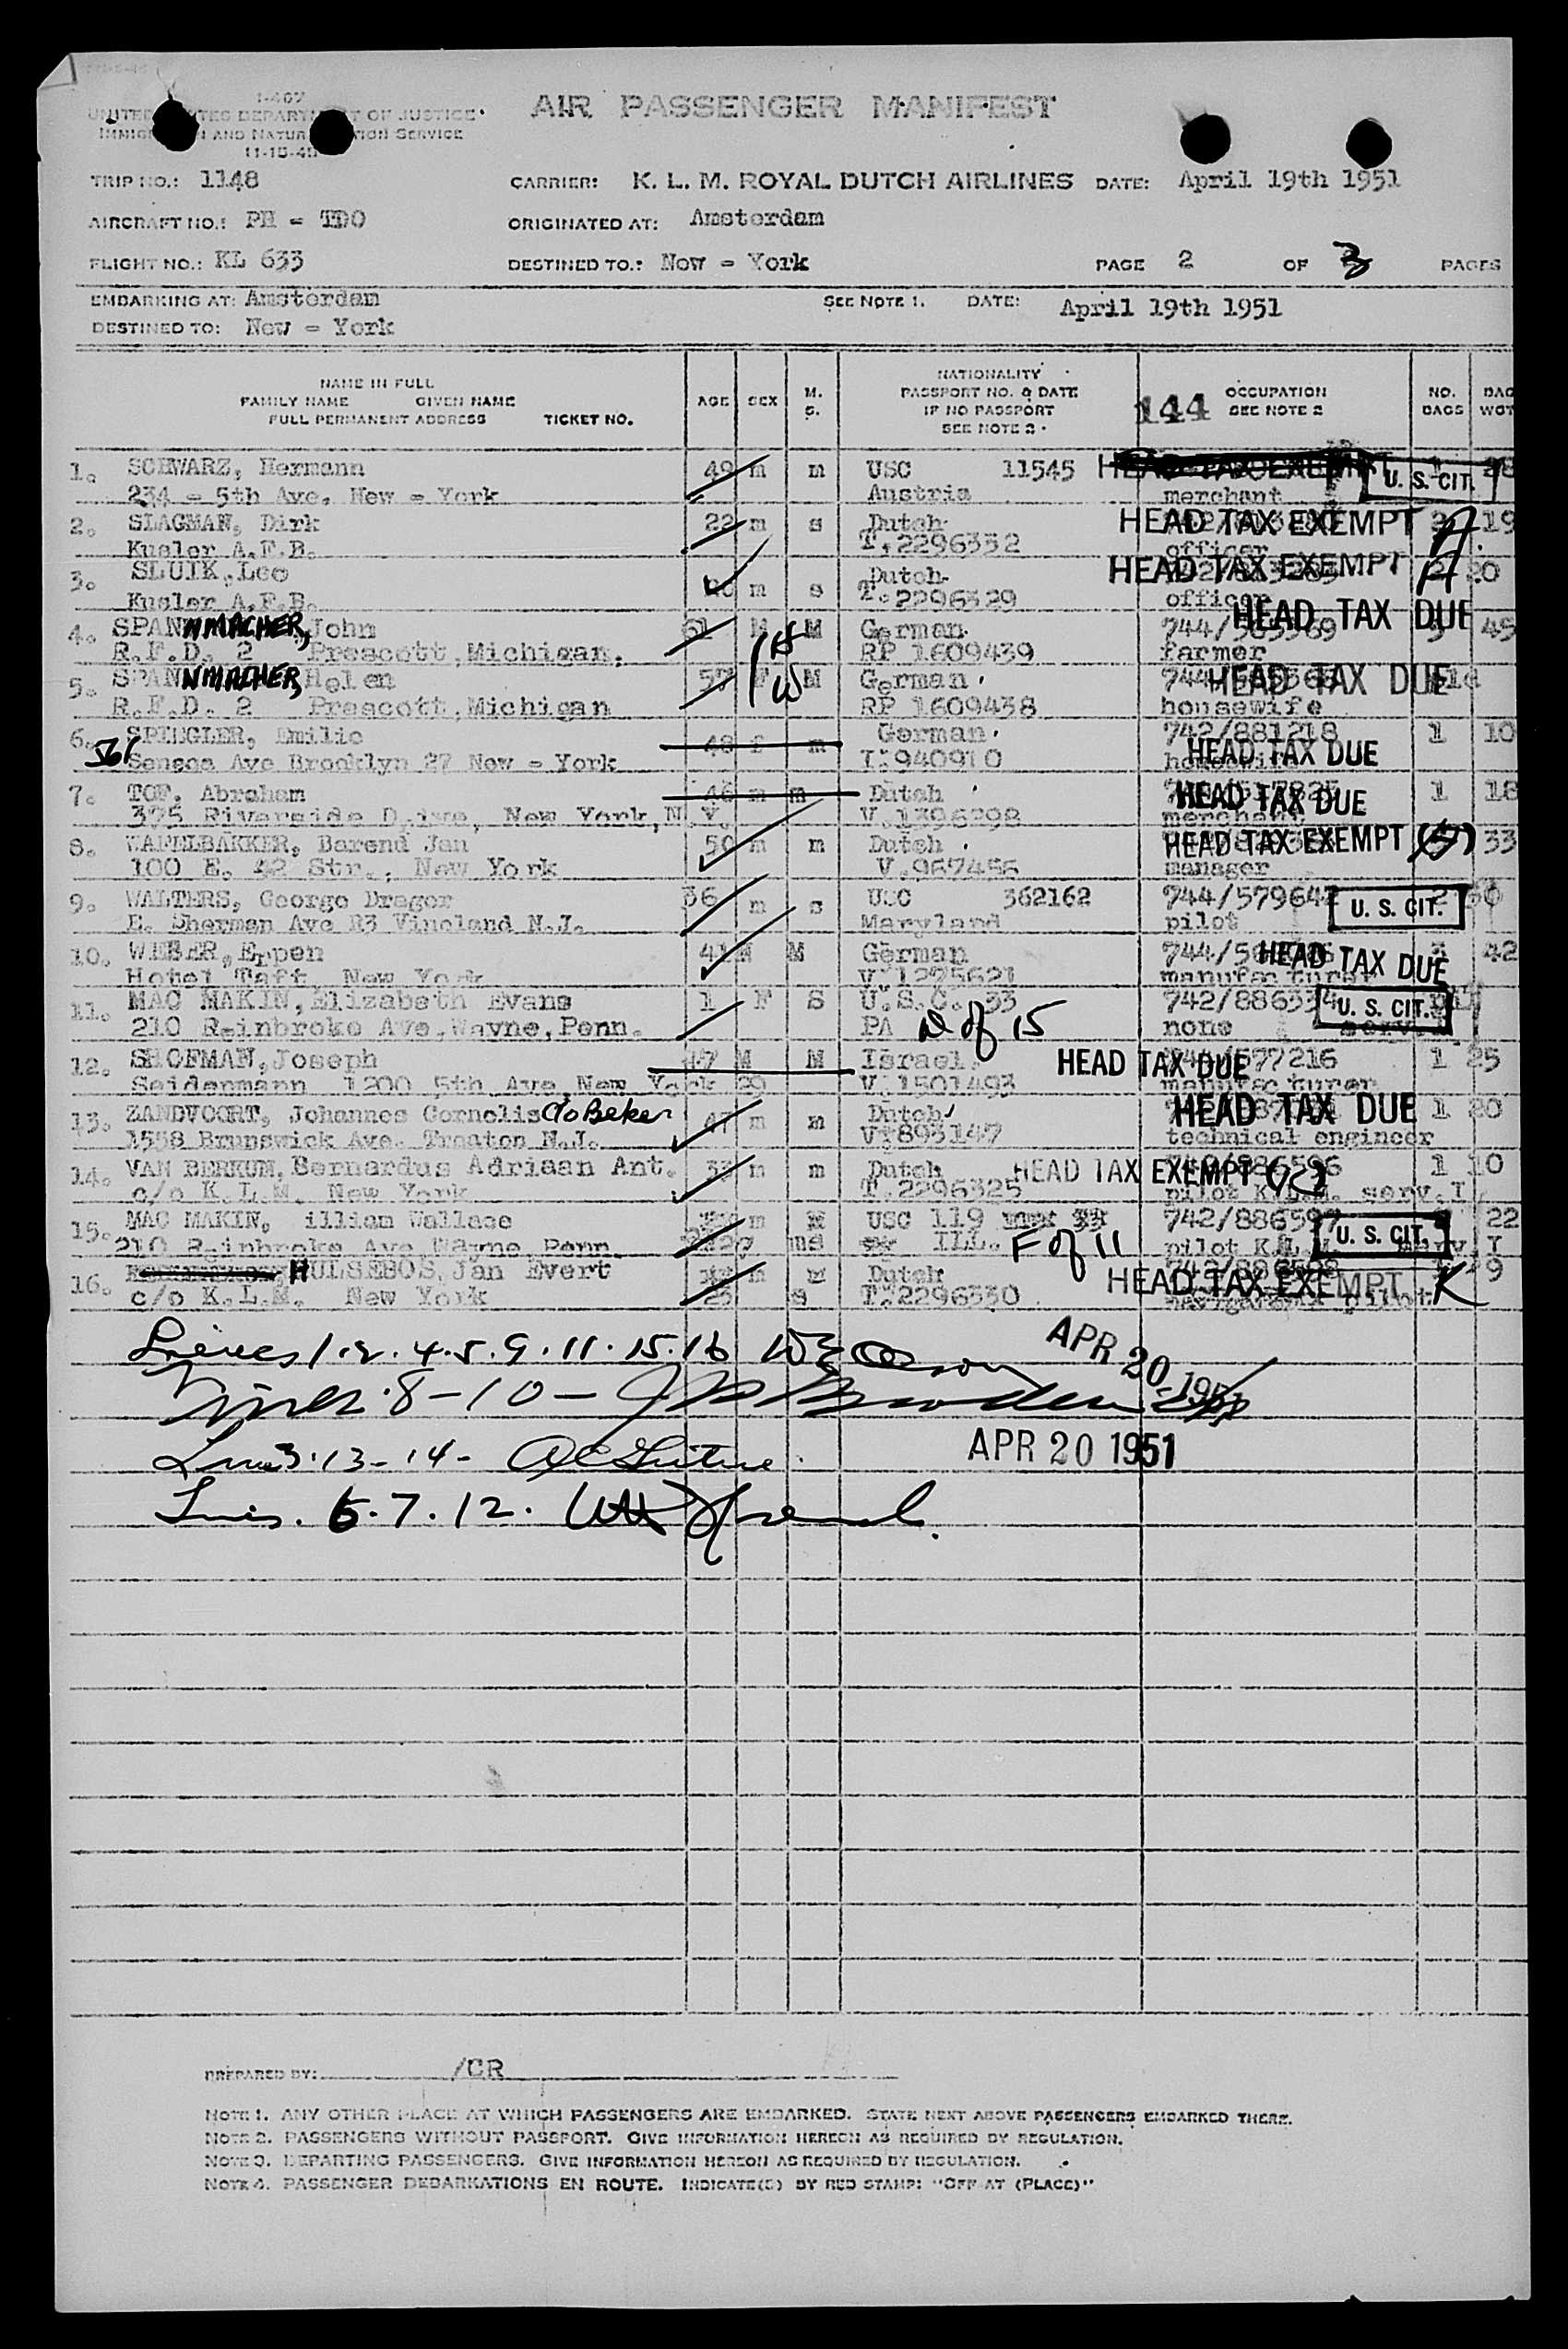 I-467
UNITED STATES DEPARTMENT OF JUSTICE
IMMIGRATION AND NATURALIZATION SERVICE
AIR PASSENGER MANIFEST
TRIP NO.: 1148 CARRIER: K. L. M. ROYAL DUTCH AIRLINES DATE: April 19th 1951
AIRCRAFT NO.: PH = TDO ORIGINATED AT: Amsterdam
FLIGHT NO.: KL 633 DESTINED TO.: New = York PAGE 2 OF 3 PAGES
EMBARKING AT: Amsterdam SEE NOTE 1. DATE: April 19th 1951
DESTINED TO: New = York
NAME IN FULL NATIONALITY
FAMILY NAME GIVEN NAME AGE SEX M. S. PASSPORT NO. & DATE 144 OCCUPATION NO. BAG
FULL PERMANENT ADDRESS TICKET NO. IF NO PASSPORT SEE NOTE 2 BAGS WGT
SEE NOTE 2
1. SCHWARZ, Hermann 49 m m USC 11545 HEAD TAX EXEMPT U. S. CIT. 28
234 = 5th Ave. New = York Austria merchant
2. SLAGMAN, Dirk 22 m s Dutch HEAD TAX EXEMPT A 2 19
Kusler A.F.B. T.2296332 officer
3. SLUIK, Leo m s Dutch HEAD TAX EXEMPT A 2 20
Kusler A.F.B. T.2296329 officer
4. SPANNMACHER, John 61 M M German HEAD TAX DUE 45
R.F.D. 2 Prescott, Michigan. H RP 1609439 farmer
5. SPANNMACHER, Helen 57 F M German HEAD TAX DUE
R.F.D. 2 Prescott, Michigan W RP 1609438 housewife
6. SPIEGLER, Emilie 48 f m German 742/881218 1 10
561 Seneca Ave Brooklyn 27 New = York I.940910 HEAD TAX DUE
7. TOF, Abraham 46 m m Dutch HEAD TAX DUE 1 18
375 Riverside Drive, New York, N.Y. V.1396298 merchant
8. WAFELBAKKER, Barend Jan 50 m m Dutch HEAD TAX EXEMPT 33
100 E. 42 Str., New York V.967456 manager
9. WALTERS, George Dragor 36 m s USC 362162 744/579642 U. S. CIT.
E. Sherman Ave R3 Vineland N.J. Maryland pilot
10. WEBER, Erpen 41 M M German HEAD TAX DUE 3 42
Hotel Taft New York V.1275621 manufacturer
11. MAC MAKIN, Elizabeth Evans 1 F S U.S.C. 33 742/886334 U. S. CIT.
210 Reinbroke Ave. Wayne, Penn. PA D of 15 none serv.
12. SHOFMAN, Joseph 47 M M Israel HEAD TAX DUE 1 25
Seidenmann 1200 5th Ave New York 29 V.1501493 manufacturer
13. ZANDVOORT, Johannes Cornelis c/o Beker 47 m m Dutch HEAD TAX DUE 1 20
1558 Brunswick Ave. Trenton N.J. VT893147 technical engineer
14. VAN BERKUM, Bernardus Adriaan Ant. 33 m m Dutch HEAD TAX EXEMPT 1 10
c/o K.L.M. New York T.2296325 pilot K.L.M. serv.I.
15. MAC MAKIN, illiam Wallace m M USC 119 742/886597 U. S. CIT. 22
210 Reinbroke Ave Wayne, Penn. ILL. F of 11 pilot K.L.M. serv.I
16. HULSEBOS, Jan Evert m Dutch HEAD TAX EXEMPT K 9
c/o K.L.M. New York 23 s T.2296330 pilot
Lines 1.2.4.5.9.11.15.16
APR 20 1951
Lines 8-10-
Lines 3.13-14-
APR 20 1951
Lines. 6.7.12.
PREPARED BY: /CR
NOTE 1. ANY OTHER PLACE AT WHICH PASSENGERS ARE EMBARKED. STATE NEXT ABOVE PASSENGERS EMBARKED THERE.
NOTE 2. PASSENGERS WITHOUT PASSPORT. GIVE INFORMATION HEREON AS REQUIRED BY REGULATION.
NOTE 3. DEPARTING PASSENGERS. GIVE INFORMATION HEREON AS REQUIRED BY REGULATION.
NOTE 4. PASSENGER DEBARKATIONS EN ROUTE. INDICATE(S) BY RED STAMP: "OFF AT (PLACE)"